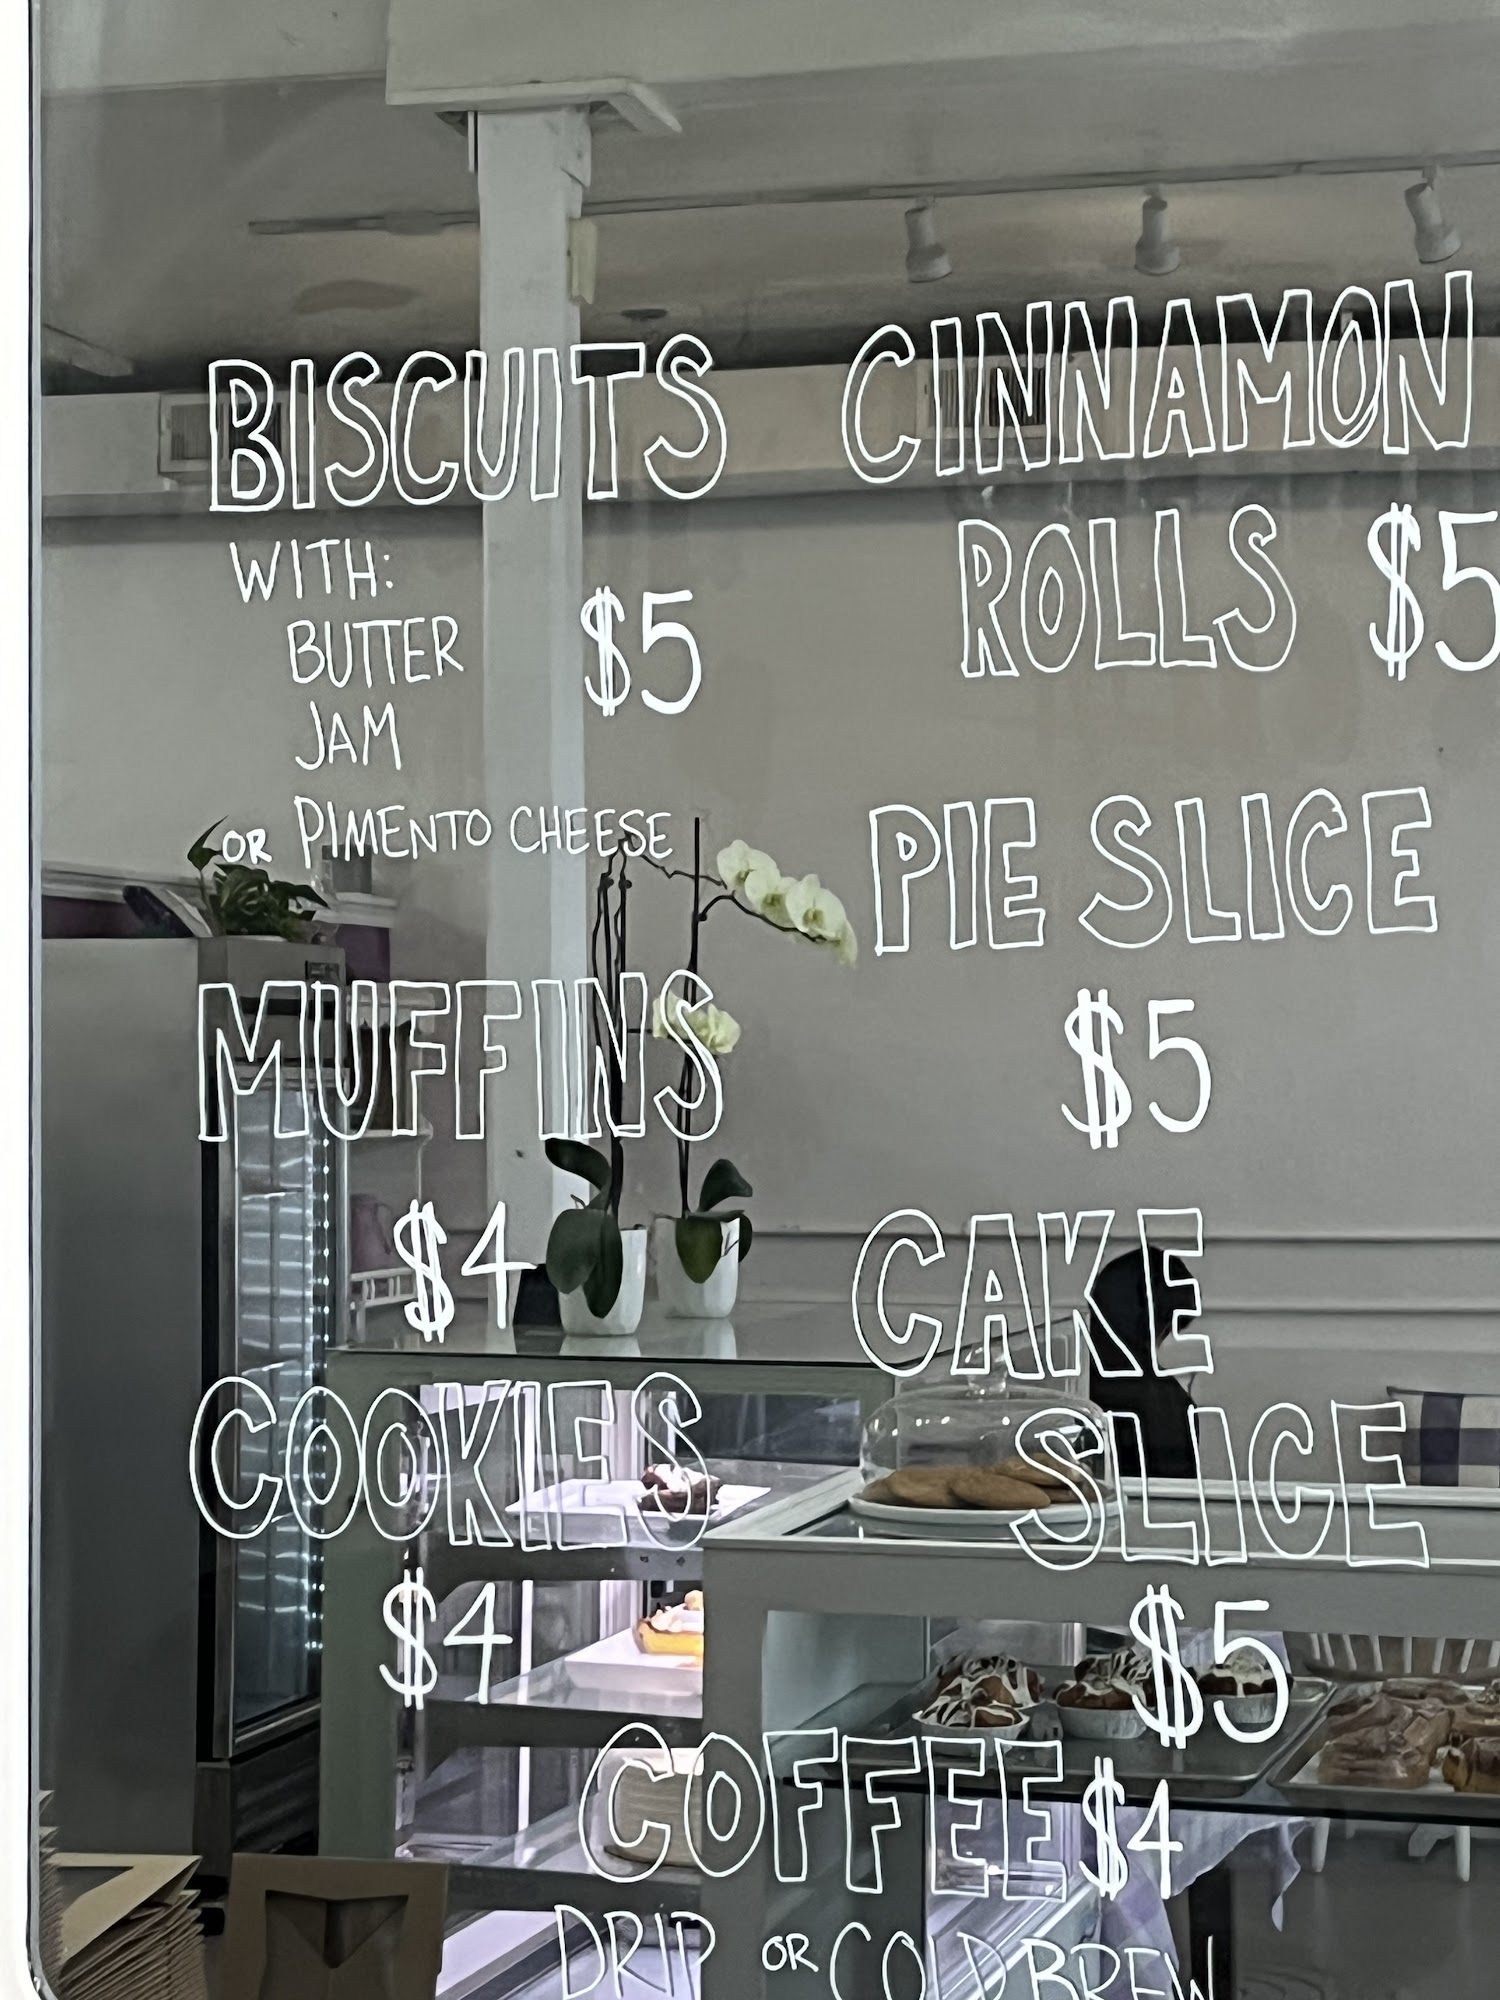 BISCUITS
WITH:
BUTTER
$5
JAM
OR PIMENTO CHEESE
MUFFINS
$4
COOKIES
$4
CINNAMON
ROLLS $5
PIE SLICE
$5
CAKE
SLICE
$5
COFFEE $4
DRIP OR COLD BREW